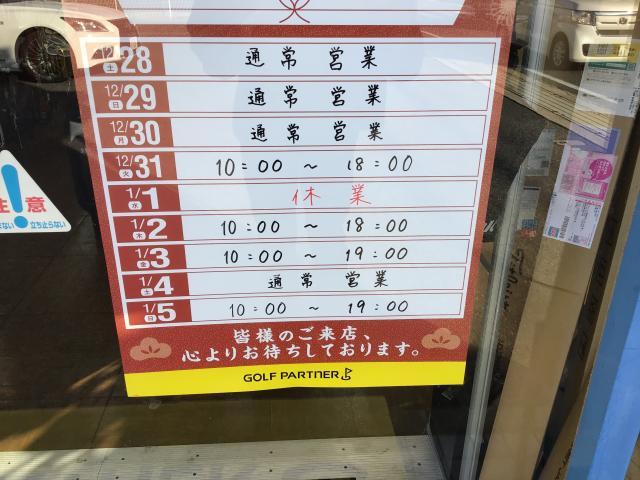 12/28 土 通常営業
12/29 日 通常営業
12/30 月 通常営業
12/31 火 10:00 ~ 18:00
1/1 水 休業
1/2 木 10:00 ~ 18:00
1/3 金 10:00 ~ 19:00
1/4 土 通常営業
1/5 日 10:00 ~ 19:00
皆様のご来店、
心よりお待ちしております。
GOLF PARTNER
意
立ち止らない